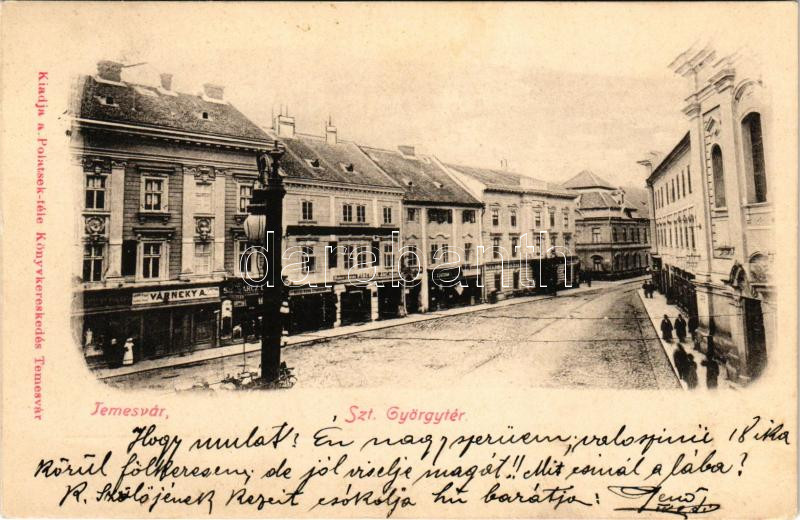 Kiadja a Polatsek-féle Könyvkereskedés Temesvár
VÁRNEKY A.
darabanth.com
Temesvár,
Szt. Györgytér.
Hogy mulat? Én nagyszerüen; valoszinü 18 ika
körül fölkeresem; de jól viselje magát!! Mit csinál a lába?
K. Szülöjének kezeit csókolja hü barátja: Jenö